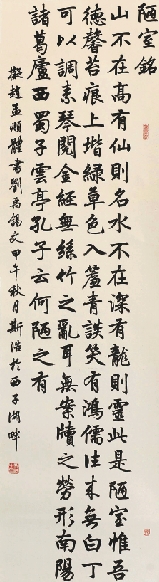 陋室銘
山不在高有仙則名水不在深有龍則靈此是陋室惟吾
德馨苔痕上堦綠草色入簾青談笑有鴻儒往來無白丁
可以調素琴閱金經無絲竹之亂耳無案牘之勞形南陽
諸葛廬西蜀子雲亭孔子云何陋之有
擬趙孟頫體書劉禹錫文甲午秋月斯浩於西子湖畔